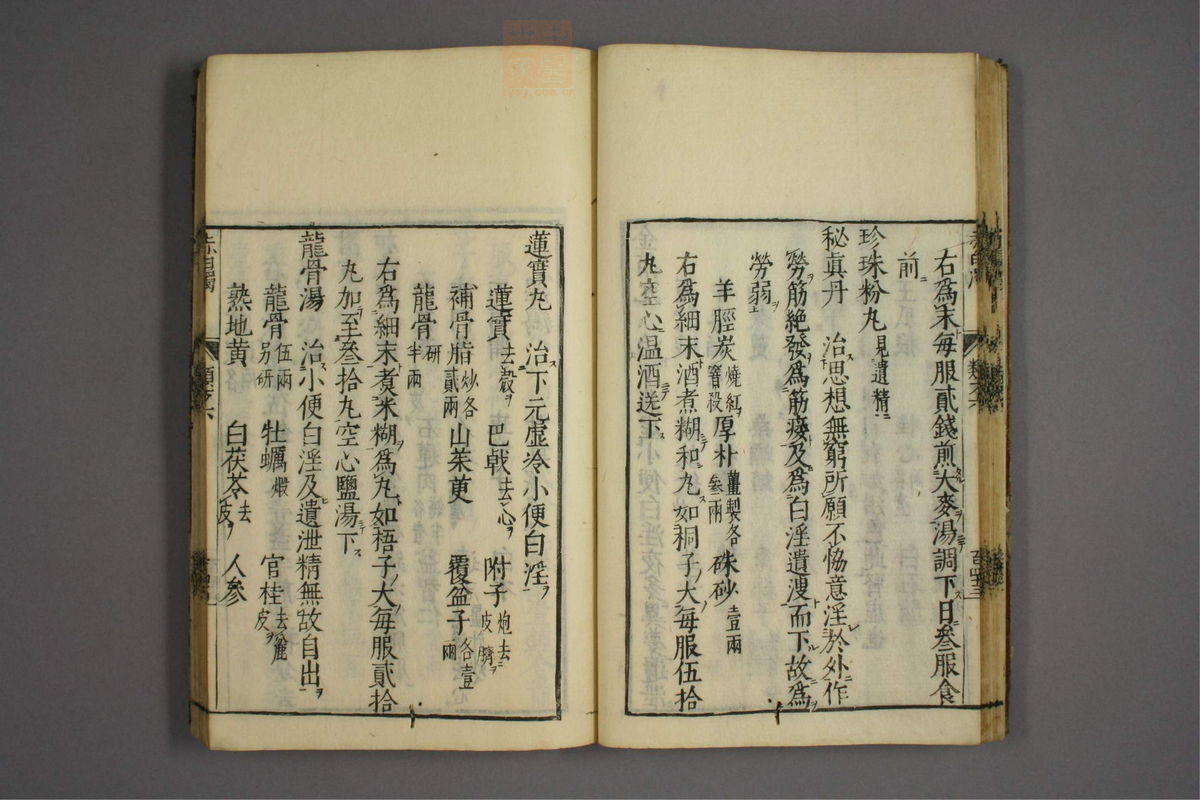 右爲末每服貳錢煎大麥湯調下日叄服食
前
珍珠粉丸見遺精
秘眞丹 治思想無窮所願不恊意淫於外作
勞筋絶發爲筋痿及爲白淫遺溲而下故爲
勞弱
羊脛炭燒紅窨殺厚朴薑製各叄兩硃砂壹兩
右爲細末酒煮糊和丸如桐子大每服伍拾
丸空心温酒送下
蓮實丸 治下元虛冷小便白淫
蓮實去殼 巴戟去心 附子炮去皮臍
補骨脂炒各貳兩山茱萸 覆盆子各壹兩
龍骨研半兩
右爲細末煮米糊爲丸如梧子大每服貳拾
丸加至叄拾丸空心鹽湯下
龍骨湯 治小便白淫及遺泄精無故自出
龍骨伍兩別研 牡蠣煆 官桂去麄皮
熟地黄 白茯苓去皮 人參
赤白濁 類之六